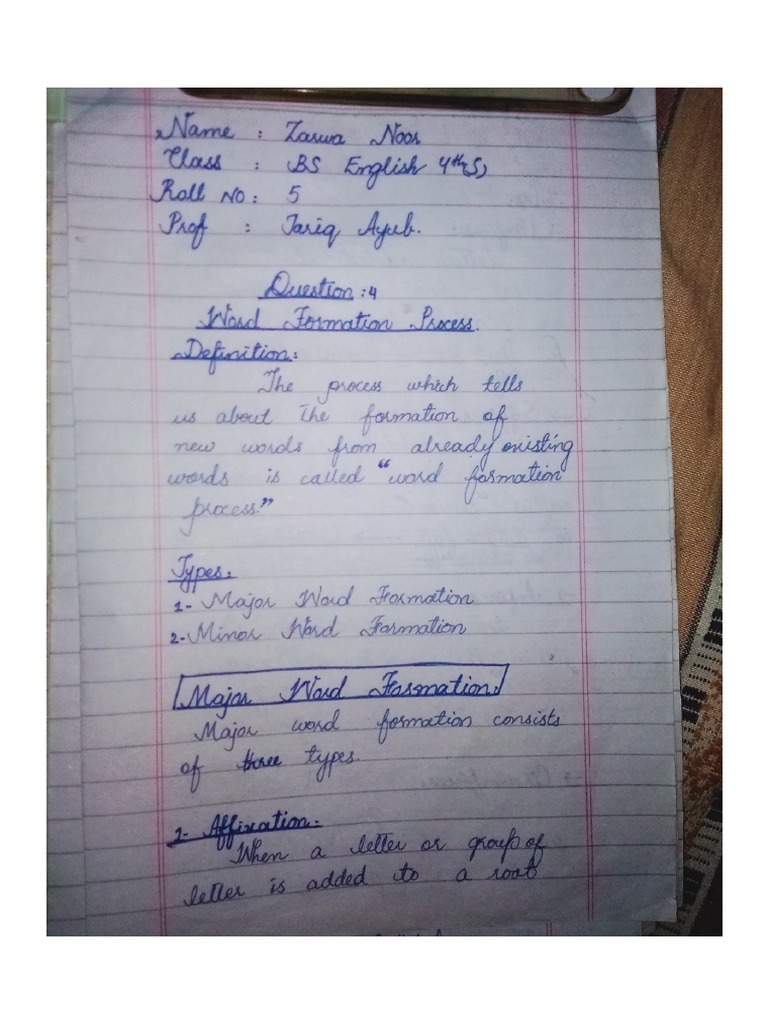 Name : Zarwa Noor
Class : BS English 4th(S)
Roll NO : 5
Prof : Tariq Ayub.
Question : 4
Word Formation Process.
Definition:
The process which tells
us about the formation of
new words from already existing
words is called "word formation
process."
Types:
1- Major Word Formation
2- Minor Word Formation
Major Word Formation:
Major word formation consists
of three types.
1- Affixation:
When a letter or group of
letter is added to a root